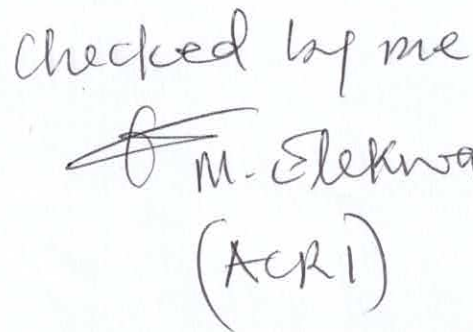 Checked by me
M. Elekwa
(ACR1)